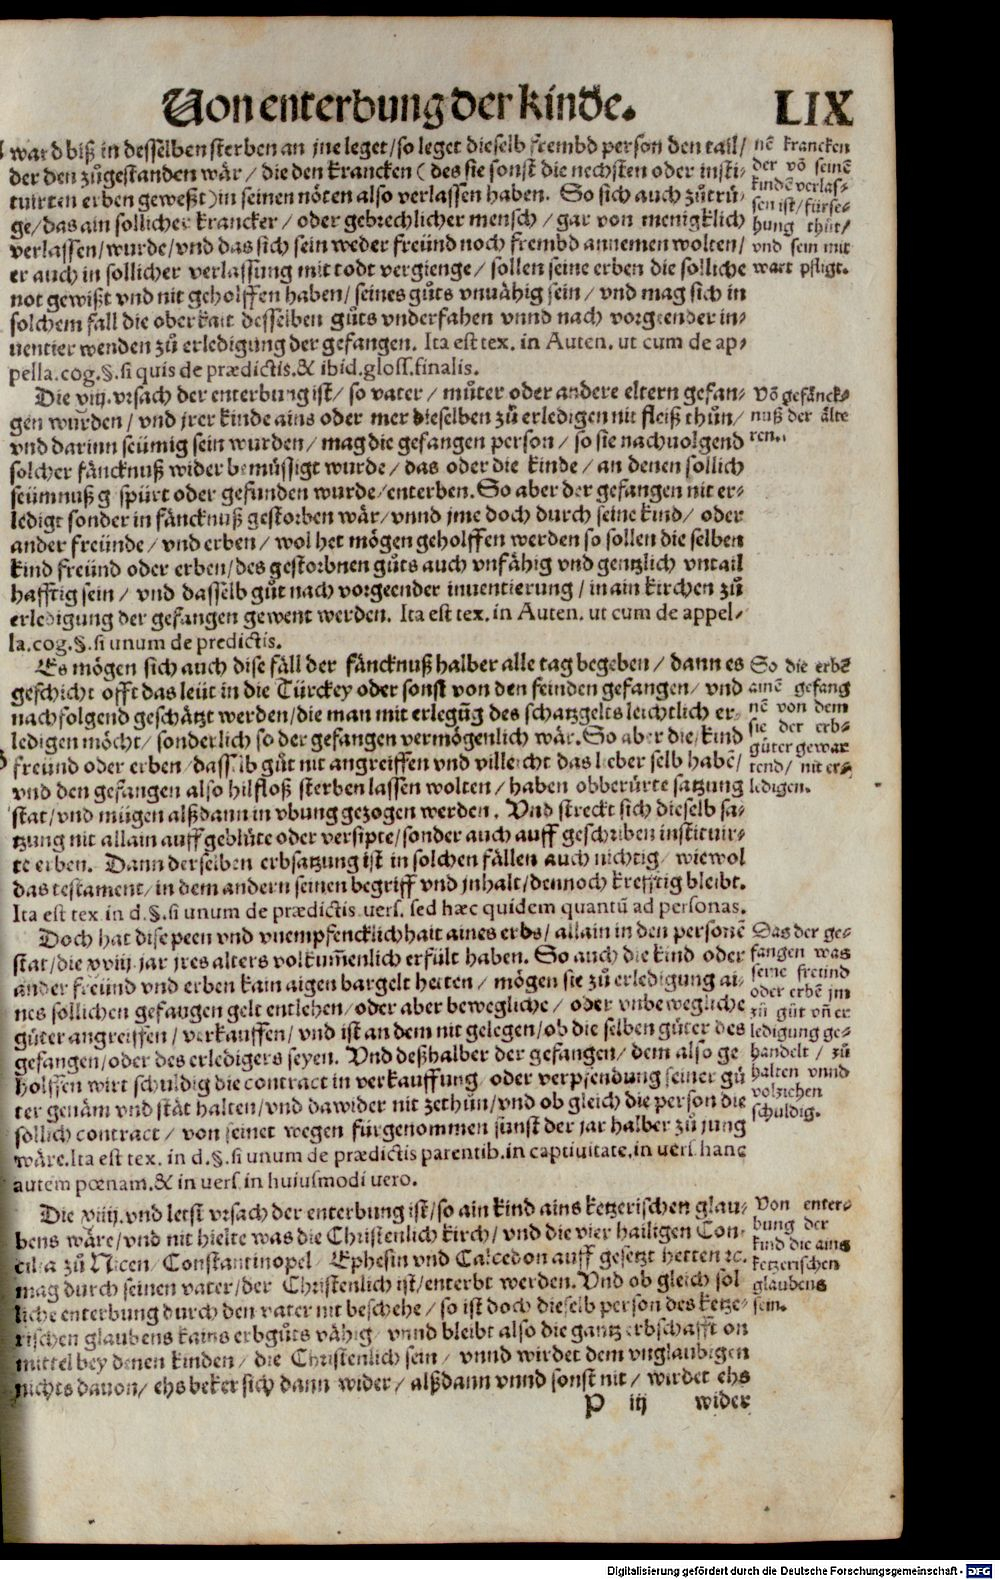 Von enterbung der kinde.
LIX
ward biß in desselben sterben an jne leget/so leget dieselb frembd person den tail/
der den zůgestanden wär/die den krancken (des sie sonst die nechsten oder insti-
tuirten erben geweßt) in seinen nöten also verlassen haben. So sich auch zůtrü-
ge/das ain sollicher krancker/oder gebrechlicher mensch/gar von menigklich
verlassen/wurde/vnd das sich sein weder freünd noch frembd annemen wolten/
er auch in sollicher verlassung mit todt vergienge/sollen seine erben die solliche
not gewißt vnd nit geholffen haben/seines gůts vnuähig sein/vnd mag sich in
solchem fall die oberkait desselben gůts vnderfahen vnnd nach vorgeender in-
uentier wenden zů erledigung der gefangen. Ita est tex. in Auten. ut cum de ap-
pella.cog.§.si quis de prædictis.& ibid.gloss.finalis.
nẽ krancken
der võ seinẽ
kindẽ verlas-
sen ist/fürse-
hung thůt/
vnd sein mit
wart pfligt.
Die viij.vrsach der enterbung ist/so vater/můter oder andere eltern gefan-
gen wurden/vnd jrer kinde ains oder mer dieselben zů erledigen nit fleiß thůn/
vnd darinn seümig sein wurden/mag die gefangen person/so sie nachuolgend
solcher fäncknuß wider bemüssigt wurde/das oder die kinde/an denen sollich
seümnuß gspürt oder gefunden wurde/enterben. So aber der gefangen nit er-
ledigt sonder in fäncknuß gestorben wär/vnnd jme doch durch seine kind/oder
ander freünde/vnd erben/wol het mögen geholffen werden so sollen die selben
kind freünd oder erben/des gestorbnen gůts auch vnfähig vnd gentzlich vntail
hafftig sein/vnd dasselb gůt nach vorgeender inuentierung/in ain kirchen zů
erledigung der gefangen gewent werden. Ita est tex. in Auten. ut cum de appel-
la.cog.§.si unum de predictis.
Võ gefänck-
nuß der älte
ren.
Es mögen sich auch dise fäll der fäncknuß halber alle tag begeben/dann es
geschicht offt das leüt in die Türckey oder sonst von den feinden gefangen/vnd
nachfolgend geschätzt werden/die man mit erlegũg des schatzgelts leichtlich er-
ledigen möcht/sonderlich so der gefangen vermögenlich wär. So aber die/kind
freünd oder erben/dasselb gůt nit angreiffen vnd villeicht das lieber selb habẽ/
vnd den gefangen also hilfloß sterben lassen wolten/haben obberürte satzung
stat/vnd mügen alßdann in vbung gezogen werden. Vnd streckt sich dieselb sa-
tzung nit allain auff geblüte oder versipte/sonder auch auff geschriben instituir-
te erben. Dann derselben erbsatzung ist in solchen fällen auch nichtig/wiewol
das testament/in dem andern seinen begriff vnd jnhalt/dennoch krefftig bleibt.
Ita est tex in d.§.si unum de prædictis vers. sed hæc quidem quantũ ad personas.
So die erbẽ
ainẽ gefang
nẽ von dem
sie der erb-
güter gewar
tend/ nit er-
ledigen.
Doch hat dise peen vnd vnempfencklichhait aines erbs/allain in den personẽ
stat/die xviij.jar jres alters volkum̃enlich erfült haben. So auch die kind oder
ander freünd vnd erben kain aigen bargelt hetten/mögen sie zů erledigung ai-
nes sollichen gefangen gelt entlehen/oder aber bewegliche/oder vnbewegliche
güter angreiffen/verkauffen/vnd ist an dem nit gelegen/ob die selben güter des
gefangen/oder des erledigers seyen. Vnd deßhalber der gefangen/dem also ge
holffen wirt schuldig die contract in verkauffung oder verpfendung seiner gü
ter genäm vnd stät halten/vnd dawider nit zethůn/vnd ob gleich die person die
sollich contract/von seinet wegen fürgenommen sunst der jar halber zů jung
wäre.Ita est tex. in d.§.si unum de prædictis parentib.in captiuitate.in vers. hanc
autem pœnam.& in vers. in huiusmodi vero.
Das der ge-
fangen was
seine freünd
oder erbẽ jm
zů gůt vñ er
ledigung ge-
handelt/ zů
halten vnnd
volziehen
schuldig.
Die viiij.vnd letst vrsach der enterbung ist/so ain kind ains ketzerischen glau-
bens wäre/vnd nit hielte was die Christenlich kirch/vnd die vier hailigen Con-
cilia zů Nicen/Constantinopel/Ephesin vnd Calcedon auff gesetzt hetten ꝛc.
mag durch seinen vater/der Christenlich ist/enterbt werden. Vnd ob gleich sol
liche enterbung durch den vater nit beschehe/so ist doch dieselb person des ketze-
rischen glaubens kains erbgůts vähig/vnnd bleibt also die gantz erbschafft on
mittel bey denen kinden/die Christenlich sein/vnnd wirdet dem vnglaubigen
nichts dauon/ehs beker sich dann wider/alßdann vnnd sonst nit/wirdet ehs
Von enter-
bung der
kind die ains
ketzerischen
glaubens
sein.
P iij
wider
Digitalisierung gefördert durch die Deutsche Forschungsgemeinschaft - DFG